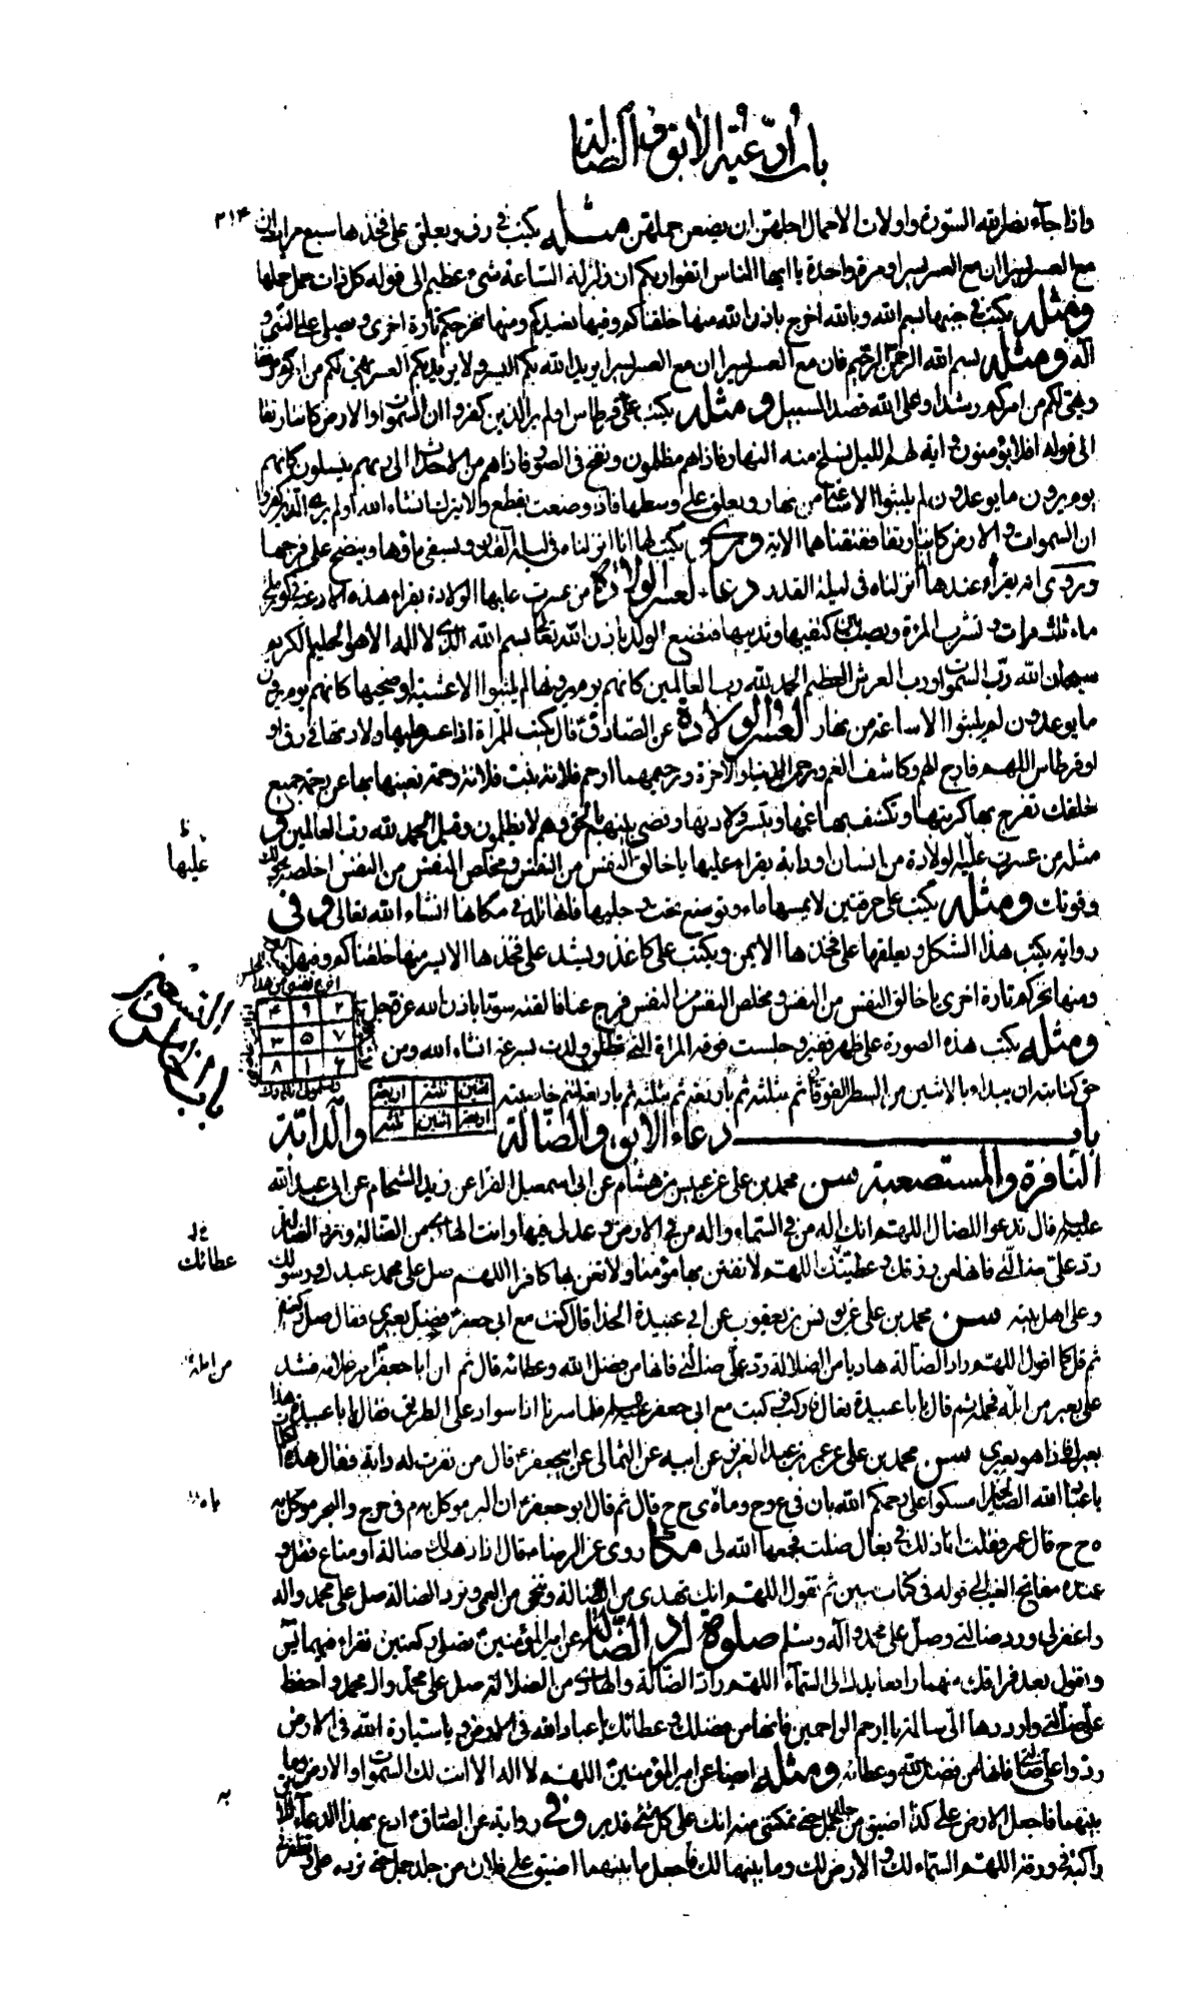 باب ادعية الابق و الضالة
٢١٤
واذا جاء نصر الله السورة واولات الاحمال اجلهن ان يضعن حملهن ومثله يكتب في رق ويعلق على فخذها سبع مرات ان
مع العسر يسرا ان مع العسر يسرا ومرة واحدة يا ايها الناس اتقوا ربكم ان زلزلة الساعة شيء عظيم الى قوله كل ذات حمل حملها
ومثله يكتب في جنبها بسم الله وبالله اخرج باذن الله منها خلقناكم وفيها نعيدكم ومنها نخرجكم تارة اخرى ويصلى على النبي و
آله ومثله بسم الله الرحمن الرحيم فان مع العسر يسرا ان مع العسر يسرا يريد الله بكم اليسر ولا يريد بكم العسر يهيئ لكم من امركم مرفقا
ويهيئ لكم من امركم رشدا وعلى الله قصد السبيل ومثله يكتب على قرطاس اولم ير الذين كفروا ان السموات والارض كانتا رتقا
الى قوله افلا يؤمنون واية لهم الليل نسلخ منه النهار فاذا هم مظلمون ونفخ في الصور فاذا هم من الاجداث الى ربهم ينسلون كانهم
يوم يرون ما يوعدون لم يلبثوا الا ساعة من نهار ويعلق على وسطها فاذا وضعت يقطع ولا يترك انشاء الله اولم ير الذين كفروا
ان السموات والارض كانتا رتقا ففتقناهما الاية وروى يكتب لها انا انزلناه في ليلة القدر ويسقى ماؤها وينضح على فرجها
وروى انه يقراء عندها انا انزلناه في ليلة القدر دعاء لعسر الولادة من عسرت عليها الولادة يقراء هذه الادعية في كوز
ماء ثلث مرات وتشرب المرءة ويصب بين كتفيها وثدييها فتضع الولد باذن الله تعالى بسم الله الذي لا اله الا هو الحليم الكريم
سبحان الله رب السموات ورب العرش العظيم الحمد لله رب العالمين كانهم يوم يرونها لم يلبثوا الا عشية او ضحيها كانهم يوم يرون
ما يوعدون لم يلبثوا الا ساعة من نهار لعسر الولادة عن الصادق ع قال يكتب للمراة اذا عسر عليها ولادتها في رق او
او قرطاس اللهم فارج الهم وكاشف الغم ورحمن الدنيا والاخرة ورحيمهما ارحم فلانة بنت فلانة رحمة تغنيها بها عن رحمة جميع
خلقك تفرج بها كربتها وتكشف بها غمها وتيسر ولادتها وقضى بينهم بالحق وهم لا يظلمون وقيل الحمد لله رب العالمين و
مثله من عسرت عليه الولادة من انسان او دابة يقراء عليها يا خالق النفس من النفس ومخلص النفس من النفس اخلصه بحولك
وقوتك ومثله يكتب على خرقتين لا يمسها ماء وتوضع تحت رجليها فانها تلد في مكانها انشاء الله تعالى وفي
رواية يكتب هذا الشكل ويعلقها على فخذها الايمن ويكتب على كاغذ ويشد على فخذها الايسر منها خلقناكم وفيها نعيدكم
ومنها نخرجكم تارة اخرى يا خالق النفس من النفس ومخلص النفس من النفس فرج عنا فالقته سويا باذن الله عز وجل
٤ ٩ ٢
٣ ٥ ٧
٨ ١ ٦
ومثله يكتب هذه الصورة على ظهر قفيز وجلست فوقه المراة التي تطلق ولدت بسرعة انشاء الله ومن
حق كتابته ان يبداء بالاثنين من السطر الفوقاني ثم بثلثه ثم باربعة
اثنين ثلثة اربعة
اربعة اثنين ثلثة
باب دعاء الابق والضالة والدابة
النافرة والمستصعبة سن محمد بن على عن عبيس بن هشام عن ابى اسمعيل الفرا عن زيد الشحام عن ابى عبد الله
عليه السلام قال تدعو للضال اللهم انك اله من في السماء واله من في الارض وعدل فيها وانت الهادي من الضالة وترد الضالة
رد على ضالتي فانها من رزقك وعطيتك اللهم لا تفتن بها مؤمنا ولا تغن بها كافرا اللهم صل على محمد عبدك ورسولك
وعلى اهل بيته سن محمد بن على عن يونس بن يعقوب عن ابى عبيدة الحذا قال كنت مع ابى جعفر ع فضل بعيري فقال صل ركعتين
ثم قل كما اقول اللهم راد الضالة هاديا من الضلالة رد على ضالتي فانها من فضل الله وعطائه قال ثم ان ابا جعفر امر غلامه فشد
على بعير من ابله فحمله ثم قال يا ابا عبيدة تعال فاركب فركبت مع ابى جعفر عليه السلام فلما سرنا اذا سواد على الطريق فقال يا ابا عبيدة هذا
بعيرك فاذا هو بعيري سن محمد بن على عن عمر بن عبد العزيز عن ابيه عن الثمالى عن ابيجعفر ع قال من نفرت له دابة فقال هذه الكلمات
يا عباد الله الصالحين امسكوا على رحمكم الله
ه ح ح قال عمر فقلت انا ذلك في بغال ضلت فجمعها الله لى مكا روى عن الرضا ع قال اذا ذهب لك ضالة او متاع فقل و
عنده مفاتح الغيب الى قوله في كتاب مبين ثم تقول اللهم انك تهدي من الضالة وتنجي من العمى وترد الضالة صل على محمد واله
واغفر لي ورد ضالتي وصل على محمد وآله وسلم صلوة لرد الضالة عن امير المؤمنين ع تصلى ركعتين تقراء فيهما يس
وتقول بعد فراغك منهما رافعا يدك الى السماء اللهم راد الضالة والهادي من الضلالة صل على محمد وال محمد واحفظ
على ضالتي وارددها الى سالمة يا ارحم الراحمين فانها من فضلك وعطائك يا عباد الله في الارض ويا سيارة الله في الارض
ردوا على ضالتي فانها من فضل الله وعطائه ومثله ايضا عن امير المؤمنين ع اللهم لا اله الا انت لك السموات والارض وما
بينهما فاجعل الارض على كذا اضيق من جلد جمل حتى تمكنني منه انك على كل شيء قدير وفي رواية عن الصادق ع ادع بهذا الدعاء للابق
واكتبه في ورقة اللهم السماء لك والارض لك وما بينهما لك فاجعل ما بينهما اضيق على فلان من جلد جمل حتى ترده على
عليها
عطائك
من ابله
به